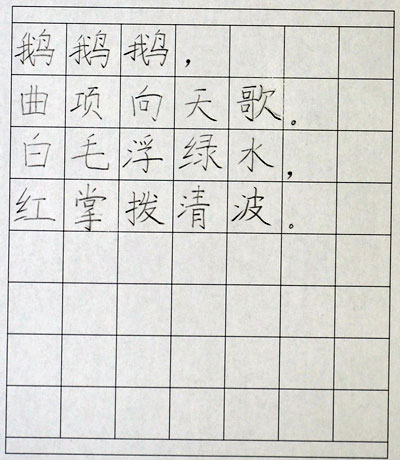 鹅鹅鹅，
曲项向天歌。
白毛浮绿水，
红掌拨清波。